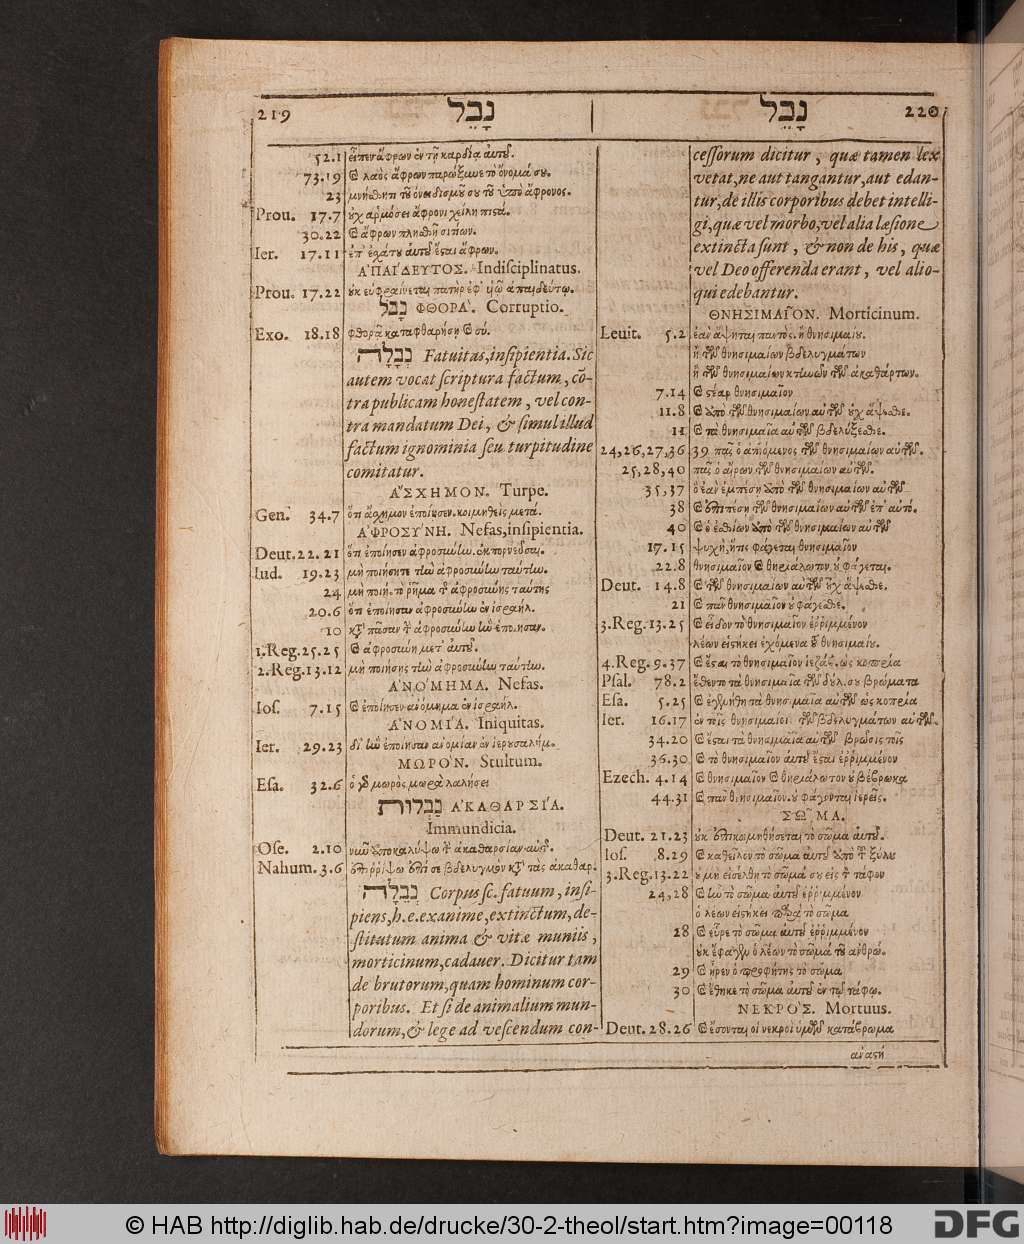 219 נָבֵל
52.1 εἶπεν ἄφρων ἐν τῇ καρδίᾳ αὐτοῦ.
73.19 Ϗ λαὸς ἄφρων παρώξυνε τὸ ὄνομά σου.
23 μνήσθητι τοῦ ὀνειδισμοῦ σου τοῦ ὑπὸ ἄφρονος.
Prou. 17.7 οὐχ ἁρμόσει ἄφρονι χείλη πιστά.
30.22 Ϗ ἄφρων πλησθῇ σιτίων.
Ier. 17.11 ἐπ' ἐσχάτου αὐτοῦ ἔσται ἄφρων.
ἈΠΑΙΔΕΥΤΟΣ. Indisciplinatus.
Prou. 17.22 οὐκ εὐφραίνεται πατὴρ ἐφ' υἱῷ ἀπαιδεύτῳ.
נָבֵל ΦΘΟΡΑ'. Corruptio.
Exo. 18.18 φθορᾷ καταφθαρήσῃ Ϗ σύ.
נְבָלָה Fatuitas, insipientia. Sic
autem vocat scriptura factum, cō-
tra publicam honestatem, vel con-
tra mandatum Dei, & simul illud
factum ignominia seu turpitudine
comitatur.
ἌΣΧΗΜΟΝ. Turpe.
Gen. 34.7 ὅτι ἄσχημον ἐποίησεν. κοιμηθεὶς μετά.
ἈΦΡΟΣΥ'ΝΗ. Nefas, insipientia.
Deut. 22.21 ὅτι ἐποίησεν ἀφροσύνην. ἐκπορνεῦσαι.
Iud. 19.23 μὴ ποιήσητε τὴν ἀφροσύνην ταύτην.
24 μὴ ποιή. τὸ ῥῆμα τῆς ἀφροσύνης ταύτης
20.6 ὅτι ἐποίησαν ἀφροσύνην ἐν ἰσραήλ.
10 κατὰ πᾶσαν τὴν ἀφροσύνην ἣν ἐποίησαν.
1. Reg. 25.25 Ϗ ἀφροσύνη μετ' αὐτοῦ.
2. Reg. 13.12 μὴ ποιήσῃς τὴν ἀφροσύνην ταύτην.
ἈΝΟ'ΜΗΜΑ. Nefas.
Ios. 7.15 Ϗ ἐποίησεν ἀνόμημα ἐν ἰσραήλ.
ἈΝΟΜΙ'Α. Iniquitas.
Ier. 29.23 δι' ἣν ἐποίησαν ἀνομίαν ἐν ἱερουσαλήμ.
ΜΩΡΟ'Ν. Stultum.
Esa. 32.6 ὁ γὰρ μωρὸς μωρὰ λαλήσει
נַבְלוּת ἈΚΑΘΑΡΣΙ'Α.
Immundicia.
Ose. 2.10 νῦν ἀποκαλύψω τὴν ἀκαθαρσίαν αὐτῆς.
Nahum. 3.6 ἐπιῤῥίψω ἐπὶ σε βδελυγμὸν κατὰ τὰς ἀκαθαρ.
נְבֵלָה Corpus sc. fatuum, insi-
piens, h. e. exanime, extinctum, de-
stitutum anima & vitæ muniis,
morticinum, cadauer. Dicitur tam
de brutorum, quam hominum cor-
poribus. Et si de animalium mun-
dorum, & lege ad vescendum con-
נָבֵל 220
cessorum dicitur, quæ tamen lex
vetat, ne aut tangantur, aut edan-
tur, de illis corporibus debet intelli-
gi, quæ vel morbo, vel alia læsione
extincta sunt, & non de his, quæ
vel Deo offerenda erant, vel alio-
qui edebantur.
ΘΝΗΣΙΜΑΙ͂ΟΝ. Morticinum.
Leuit. 5.2 ἐὰν ἅψηται παντὸς. ἢ θνησιμαίου.
ἢ τῶν θνησιμαίων βδελυγμάτων
ἢ τῶν θνησιμαίων κτηνῶν τῶν ἀκαθάρτων.
7.14 Ϗ στέαρ θνησιμαῖον
11.8 Ϗ ἀπὸ τῶν θνησιμαίων αὐτῶν οὐχ ἅψεσθε.
11 Ϗ τὰ θνησιμαῖα αὐτῶν βδελύξεσθε.
24,26,27,36 39 πᾶς ὁ ἁπτόμενος τῶν θνησιμαίων αὐτῶν.
25,28,40 πᾶς ὁ αἴρων τῶν θνησιμαίων αὐτῶν.
35,37 ὃ ἐὰν ἐμπέσῃ ἀπὸ τῶν θνησιμαίων αὐτῶν
38 Ϗ ἐπιπέσῃ τῶν θνησιμαίων αὐτῶν ἐπ' αὐτό.
40 Ϗ ὁ ἐσθίων ἀπὸ τῶν θνησιμαίων αὐτῶν
17.15 ψυχὴ, ἥτις φάγεται θνησιμαῖον
22.8 θνησιμαῖον Ϗ θηριάλωτον οὐ φάγεται.
Deut. 14.8 Ϗ τῶν θνησιμαίων αὐτῶν οὐχ ἅψεσθε.
21 Ϗ πᾶν θνησιμαῖον οὐ φάγεσθε.
3. Reg. 13.25 Ϗ εἶδον τὸ θνησιμαῖον ἐῤῥιμμένον
λέων εἱστήκει ἐχόμενα τοῦ θνησιμαίου.
4. Reg. 9.37 Ϗ ἔσται τὸ θνησιμαῖον ἰεζάβ. ὡς κοπρία
Psal. 78.2 ἔθεντο τὰ θνησιμαῖα τῶν δούλ. σου βρώματα
Esa. 5.25 Ϗ ἐγενήθη τὰ θνησιμαῖα αὐτῶν ὡς κοπρία
Ier. 16.17 ἐν τοῖς θνησιμαίοι. τῶν βδελυγμάτων αὐτῶν.
34.20 Ϗ ἔσται τὰ θνησιμαῖα αὐτῶν βρῶσις τοῖς
36.30 Ϗ τὸ θνησιμαῖον αὐτοῦ ἔσται ἐῤῥιμμένον
Ezech. 4.14 Ϗ θνησιμαῖον Ϗ θηριάλωτον οὐ βέβρωκα
44.31 Ϗ πᾶν θνησιμαῖον. οὐ φάγονται ἱερεῖς.
ΣΩ͂ΜΑ.
Deut. 21.23 οὐκ ἐπικοιμηθήσεται τὸ σῶμα αὐτοῦ.
Ios. 8.29 Ϗ καθεῖλον τὸ σῶμα αὐτοῦ ἀπὸ τοῦ ξύλου
3. Reg. 13.22 οὐ μὴ εἰσέλθῃ τὸ σῶμά σου εἰς τὸν τάφον
24,28 Ϗ ἦν τὸ σῶμα αὐτοῦ ἐῤῥιμμένον
ὁ λέων εἱστήκει παρὰ τὸ σῶμα
28 Ϗ εὗρε τὸ σῶμα αὐτοῦ ἐῤῥιμμένον
οὐκ ἔφαγεν ὁ λέων τὸ σῶμα τοῦ ἀνθρώ.
29 Ϗ ἦρεν ὁ προφήτης τὸ σῶμα
30 Ϗ ἔθηκε τὸ σῶμα αὐτοῦ ἐν τῷ τάφῳ.
ΝΕΚΡΟ'Σ. Mortuus.
Deut. 28.26 Ϗ ἔσονται οἱ νεκροὶ ὑμῶν κατάβρωμα
ἀναστή
© HAB http://diglib.hab.de/drucke/30-2-theol/start.htm?image=00118
DFG